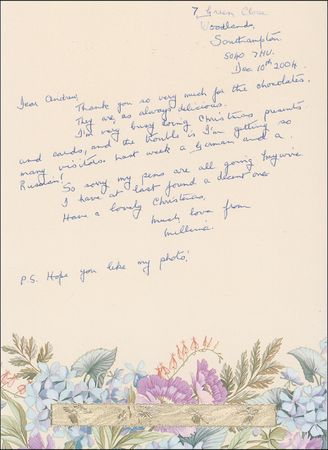 7 Green Close
Woodlands,
Southampton
SO40 7HU.
Dec 10th 2004
Dear Andrew,
Thank you so very much for the chocolates.
They are, as always delicious.
I'm very busy doing Christmas presents
and cards, and the trouble is I'm getting so
many visitors. Last week a German and a
Russian,
So sorry my pens are all going
I have at last found a decent one
Have a lovely Christmas,
Much love from
Millvina.
P.S. Hope you like my photo!